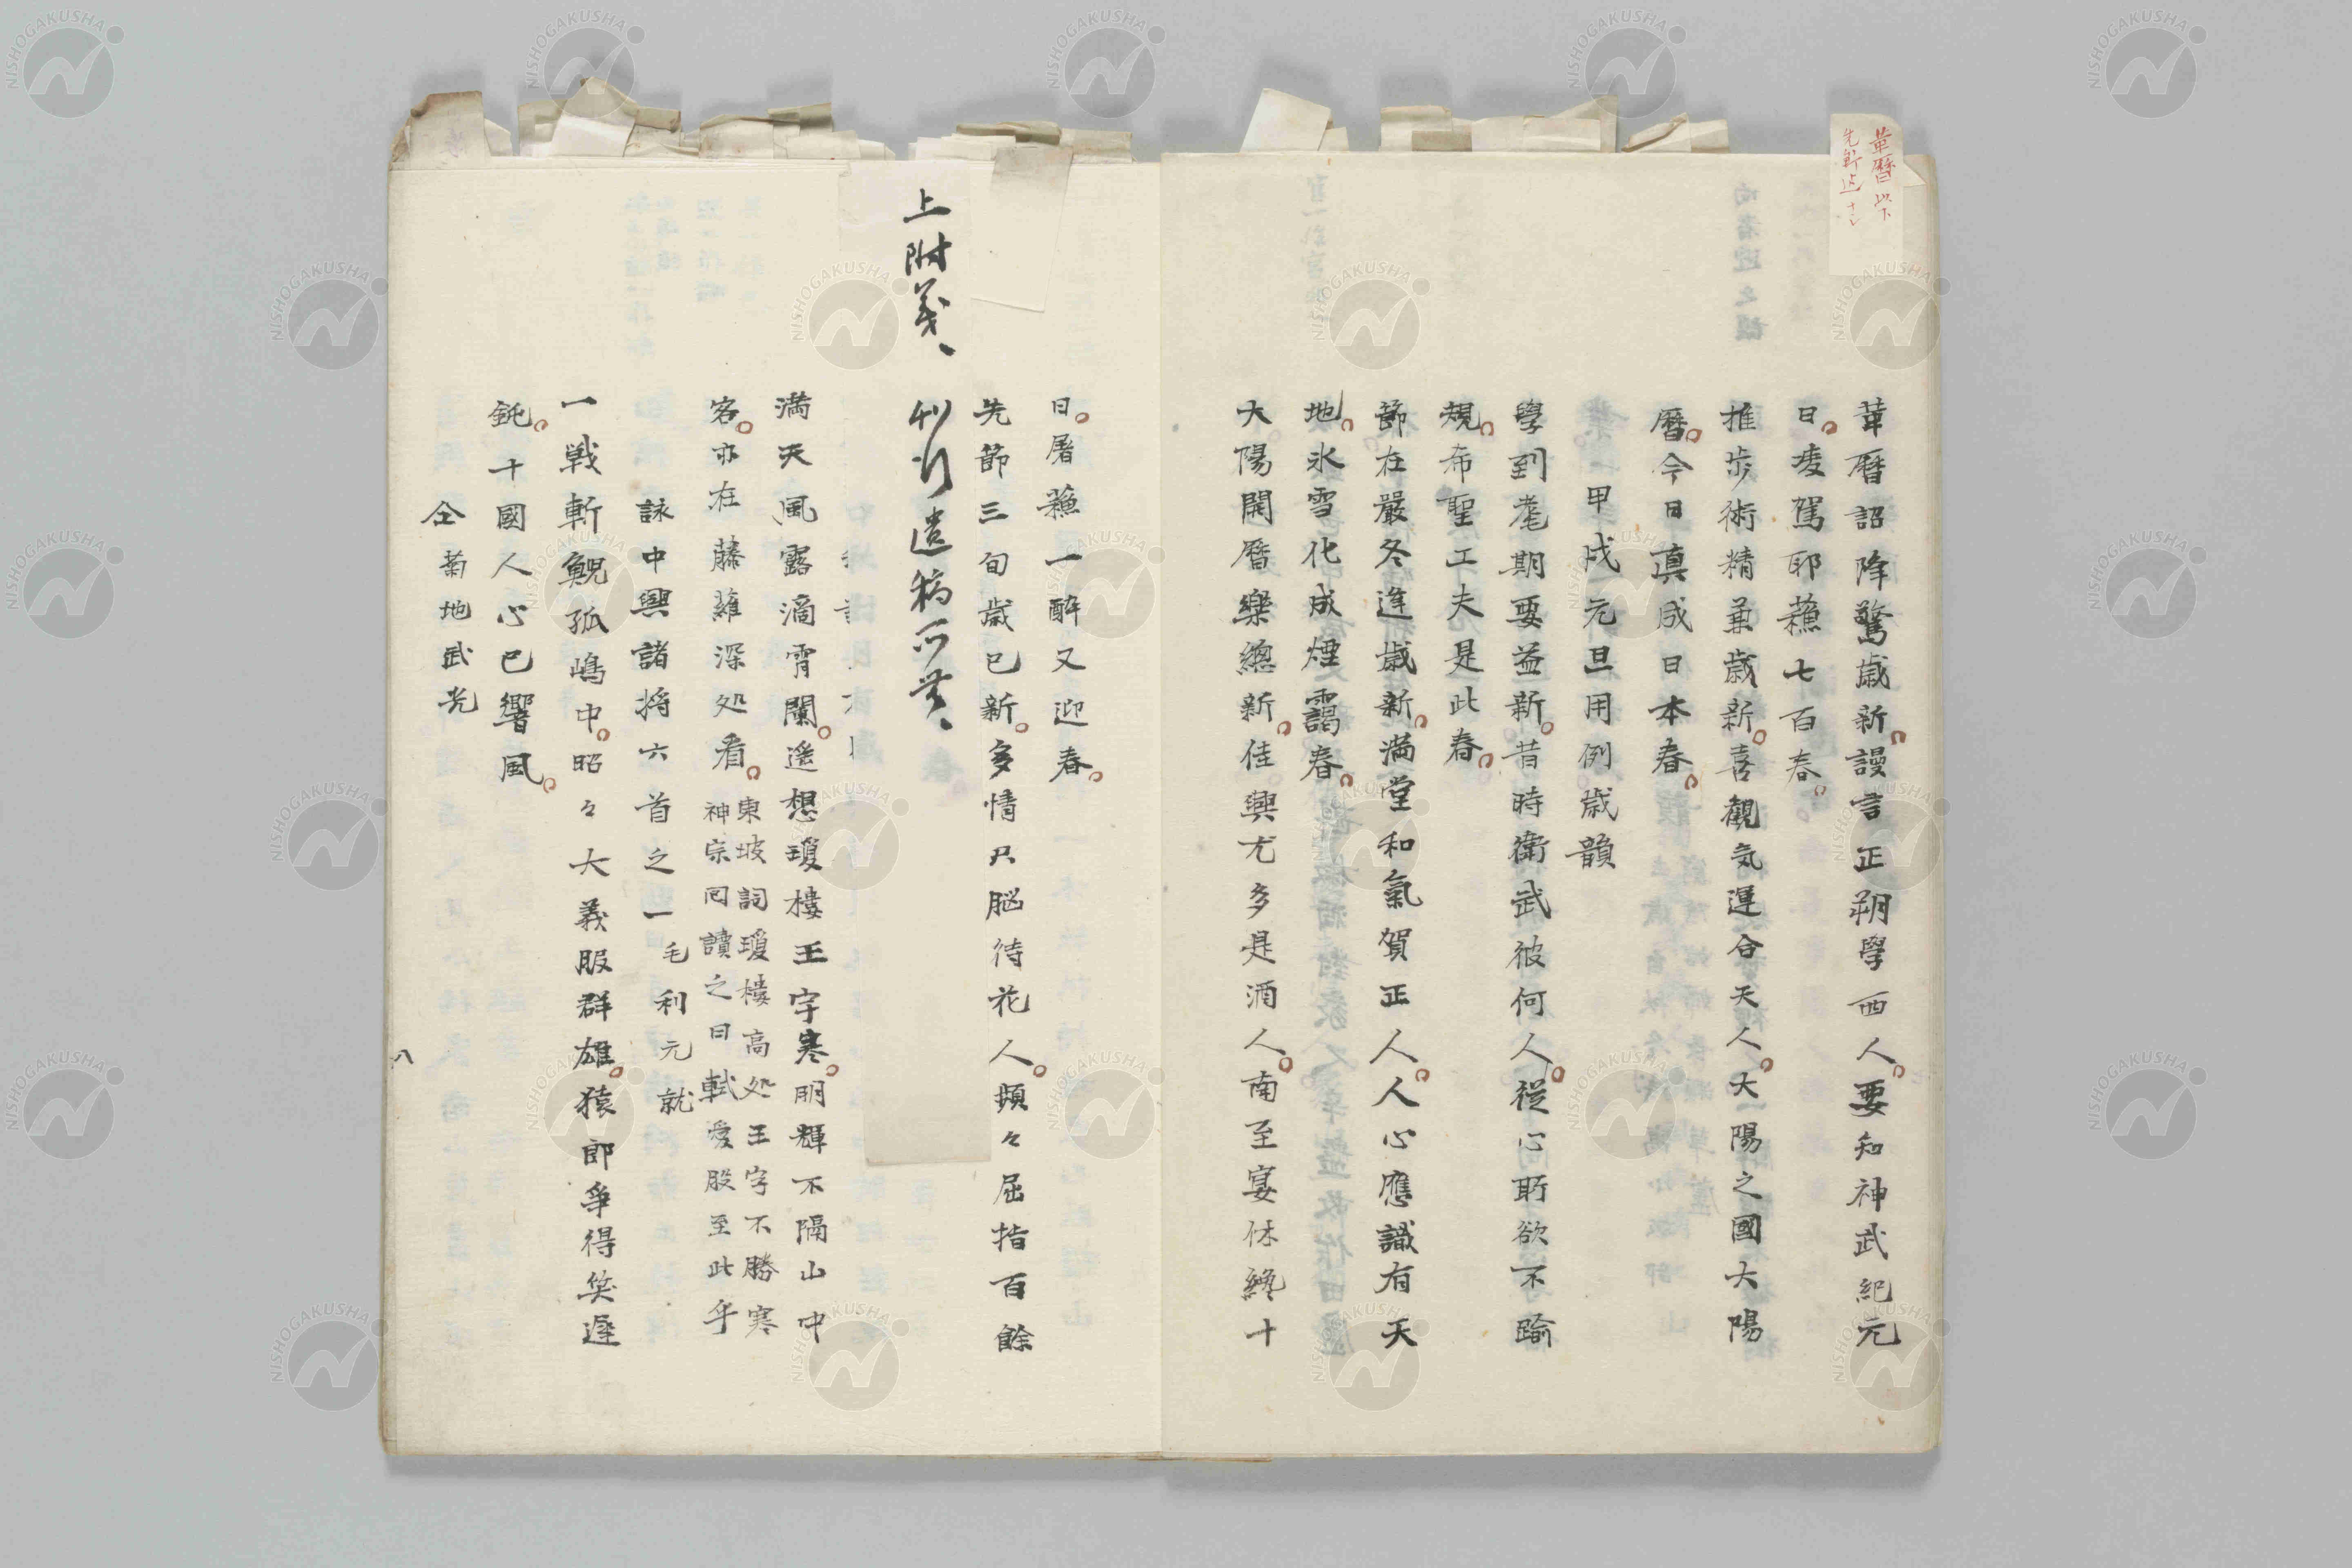 革暦以下
革暦詔降驚歳新謾言正朔學西人要知神武紀元
日凌駕耶蘓七百春
推歩術精兼歳新喜觀気運合天人大陽之國大陽
暦今日真成日本春
甲戌元旦用例歳韻
學到耄期要益新昔時衛武彼何人從心所欲不踰
規希聖工夫是此春
節在嚴冬迎歳新満堂和氣賀正人人心應識有天
地氷雪化成煙靄春
大陽開暦樂總新佳興尤多是酒人南至宴休纔十
日屠蘓一醉又迎春
先節三旬歳已新多情只脳待花人頻々屈指百餘
上附箋、
刊行遺稿所無、
満天風露滴宵闌遥想瓊樓玉宇寒明輝不隔山中
客亦在藤蘿深処看
東坡詞瓊樓高処玉宇不勝寒
神宗囘讀之曰軾愛股至此乎
詠中興諸将六首之一
毛利元就
一戦斬鯢孤嶋中昭々大義服群雄猿郎争得笑遅
鈍十國人心已響風
仝
菊地武光
八
NISHOGAKUSHA